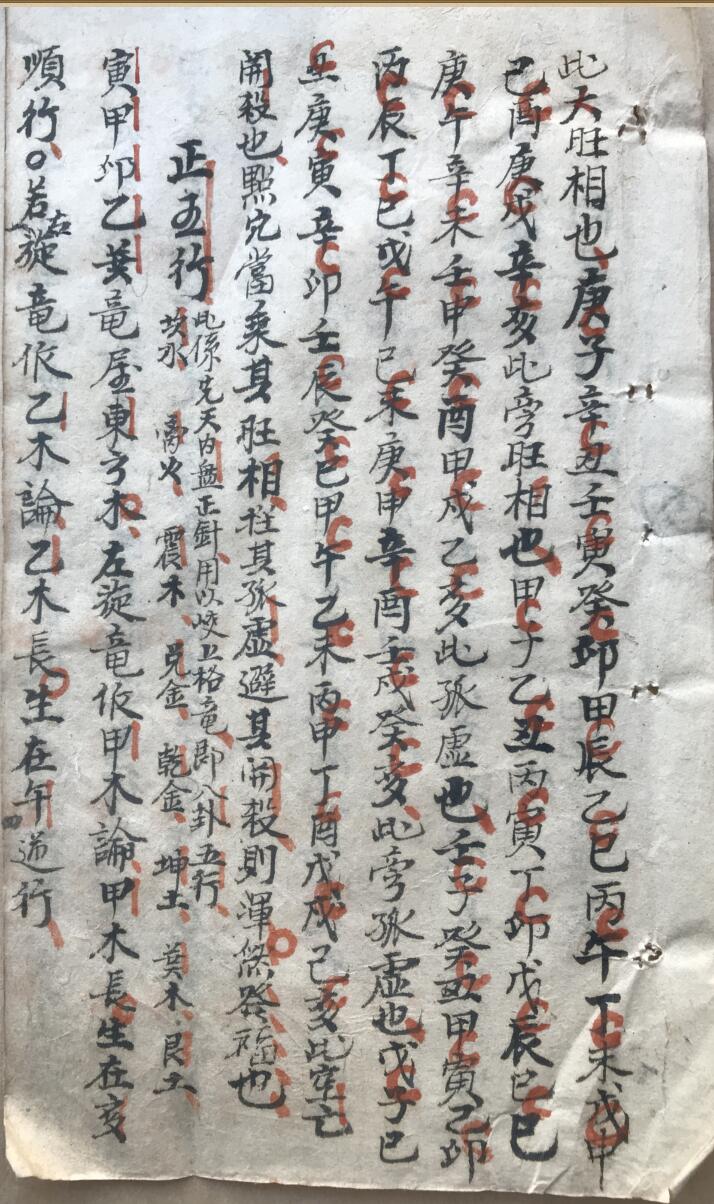 此大旺相也庚子辛丑壬寅癸卯甲辰乙巳丙午丁未戊申
己酉庚戌辛亥此旁旺相也甲子乙丑丙寅丁卯戊辰己巳
庚午辛未壬申癸酉甲戌乙亥此孤虛也壬子癸丑甲寅乙卯
丙辰丁巳戊午己未庚申辛酉壬戌癸亥此旁孤虛也戊子己
丑庚寅辛卯壬辰癸巳甲午乙未丙申丁酉戊戌己亥此空亡
関殺也點穴當乘其旺相挃其孤虛避其関殺則渾然發福也
正五行
此係先天內盤正針用以峧上格竜即八卦五行
坎水 离火 震木 兑金 乾金 坤土 巽木 艮土
寅甲卯乙巽竜屋東方木左旋竜依甲木論甲木長生在亥
順行〇若右旋竜依乙木論乙木長生在午逆行